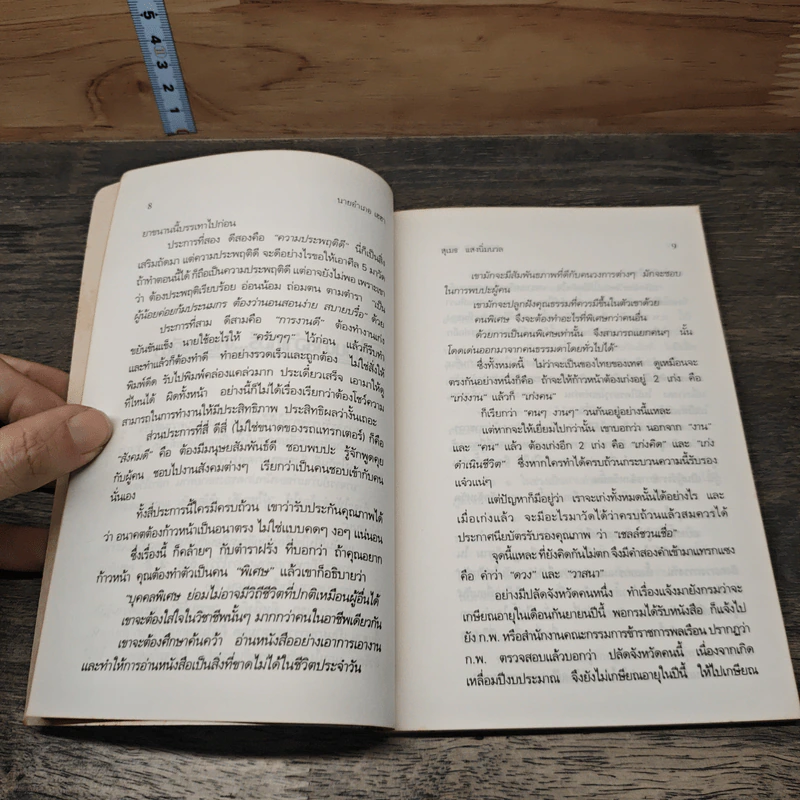 5 4 3 2 1
8 นายอำเภอ
ยาขนานนี้บรรเทาไปก่อน
ประการที่สอง ดีสองคือ "ความประพฤติดี" นี่ก็เป็นสิ่ง
เสริมถัดมา แต่ความประพฤติดี จะดีอย่างไรขอให้เอาศีล 5 มาวัด
ถ้าทำตอนนี้ได้ ก็ถือเป็นความประพฤติดี แต่อาจยังไม่พอ เพราะเขา
ว่า ต้องประพฤติเรียบร้อย อ่อนน้อม ถ่อมตน ตามตำรา "เป็น
ผู้น้อยค่อยก้มประนมกร ต้องว่านอนสอนง่าย สบายปรื๋อ" ด้วย
ประการที่สาม ดีสามคือ "การงานดี" ต้องทำงานเก่ง
ขยันขันแข็ง นายใช้อะไรให้ "ครับๆๆ" ไว้ก่อน แล้วก็รีบทำ
และทำแล้วก็ต้องทำดี ทำอย่างรวดเร็วและถูกต้อง ไม่ใช่สั่งให้
พิมพ์ดีด รับไปพิมพ์คล่องแคล่วมาก ประเดี๋ยวเสร็จ เอามาให้ดู
ที่ไหนได้ ผิดทั้งหน้า อย่างนี้ก็ไม่ได้เรื่องเรียกว่าต้องโชว์ความ
สามารถในการทำงานให้มีประสิทธิภาพ ประสิทธิผลว่างั้นเถอะ
ส่วนประการที่สี่ ดีสี่ (ไม่ใช่ขนาดของรถแทรกเตอร์) ก็คือ
"สังคมดี" คือ ต้องมีมนุษยสัมพันธ์ดี ชอบพบปะ รู้จักพูดคุย
กับผู้คน ชอบไปงานสังคมต่างๆ เรียกว่าเป็นคนชอบเข้ากับคน
นั่นเอง
ทั้งสี่ประการนี้ใครมีครบถ้วน เขาว่ารับประกันคุณภาพได้
ว่า อนาคตต้องก้าวหน้าเป็นอนาตรง ไม่ใช่แบบคดๆ งอๆ แน่นอน
ซึ่งเรื่องนี้ ก็คล้ายๆ กับตำราฝรั่ง ที่บอกว่า ถ้าคุณอยาก
ก้าวหน้า คุณต้องทำตัวเป็นคน "พิเศษ" แล้วเขาก็อธิบายว่า
"บุคคลพิเศษ ย่อมไม่อาจมีวิถีชีวิตที่ปกติเหมือนผู้อื่นได้
เขาจะต้องใส่ใจในวิชาชีพนั้นๆ มากกว่าคนในอาชีพเดียวกัน
เขาจะต้องศึกษาค้นคว้า อ่านหนังสืออย่างเอาการเอางาน
และทำให้การอ่านหนังสือเป็นสิ่งที่ขาดไม่ได้ในชีวิตประจำวัน
สุเมธ แสงนิ่มนวล ๙
เขามักจะมีสัมพันธภาพที่ดีกับคนวงการต่างๆ มักจะชอบ
ในการพบปะผู้คน
เขามักจะปลูกฝังคุณธรรมที่ควรมีขึ้นในตัวเขาด้วย
คนพิเศษ จึงจะต้องทำอะไรที่พิเศษกว่าคนอื่น
ด้วยการเป็นคนพิเศษเท่านั้น จึงสามารถแยกคนๆ นั้น
โดดเด่นออกมาจากคนธรรมดาโดยทั่วไปได้"
ซึ่งทั้งหมดนี้ ไม่ว่าจะเป็นของไทยของเทศ ดูเหมือนจะ
ตรงกันอย่างหนึ่งก็คือ ถ้าจะให้ก้าวหน้าต้องเก่งอยู่ 2 เก่ง คือ
"เก่งงาน" แล้วก็ "เก่งคน"
ก็เรียกว่า "คนๆ งานๆ" วนกันอยู่อย่างนี้แหละ
แต่หากจะให้เยี่ยมไปกว่านี้ เขาบอกว่า นอกจาก "งาน"
และ "คน" แล้ว ต้องเก่งอีก 2 เก่ง คือ "เก่งคิด" และ "เก่ง
ดำเนินชีวิต" ซึ่งหากใครทำได้ครบถ้วนกระบวนความนี้รับรอง
แจ๋วแน่ๆ
แต่ปัญหาก็มีอยู่ว่า เราจะเก่งทั้งหมดนั้นได้อย่างไร และ
เมื่อเก่งแล้ว จะมีอะไรมาวัดได้ว่าครบถ้วนแล้วสมควรได้
ประกาศนียบัตรรับรองคุณภาพ ว่า "เชลล์ชวนเชื่อ"
จุดนี้แหละ ที่ยังคิดกันไม่ตก จึงมีคำสองคำเข้ามาแทรกแซง
คือ คำว่า "ดวง" และ "วาสนา"
อย่างมีปลัดจังหวัดคนหนึ่ง ทำเรื่องแจ้งมายังกรมว่าจะ
เกษียณอายุในเดือนกันยายนปีนี้ พอกรมได้รับหนังสือ ก็แจ้งไป
ยัง ก.พ. หรือสำนักงานคณะกรรมการข้าราชการพลเรือน ปรากฏว่า
ก.พ. ตรวจสอบแล้วบอกว่า ปลัดจังหวัดคนนี้ เนื่องจากเกิด
เหลื่อมปีงบประมาณ จึงยังไม่เกษียณอายุในปีนี้ ให้ไปเกษียณ